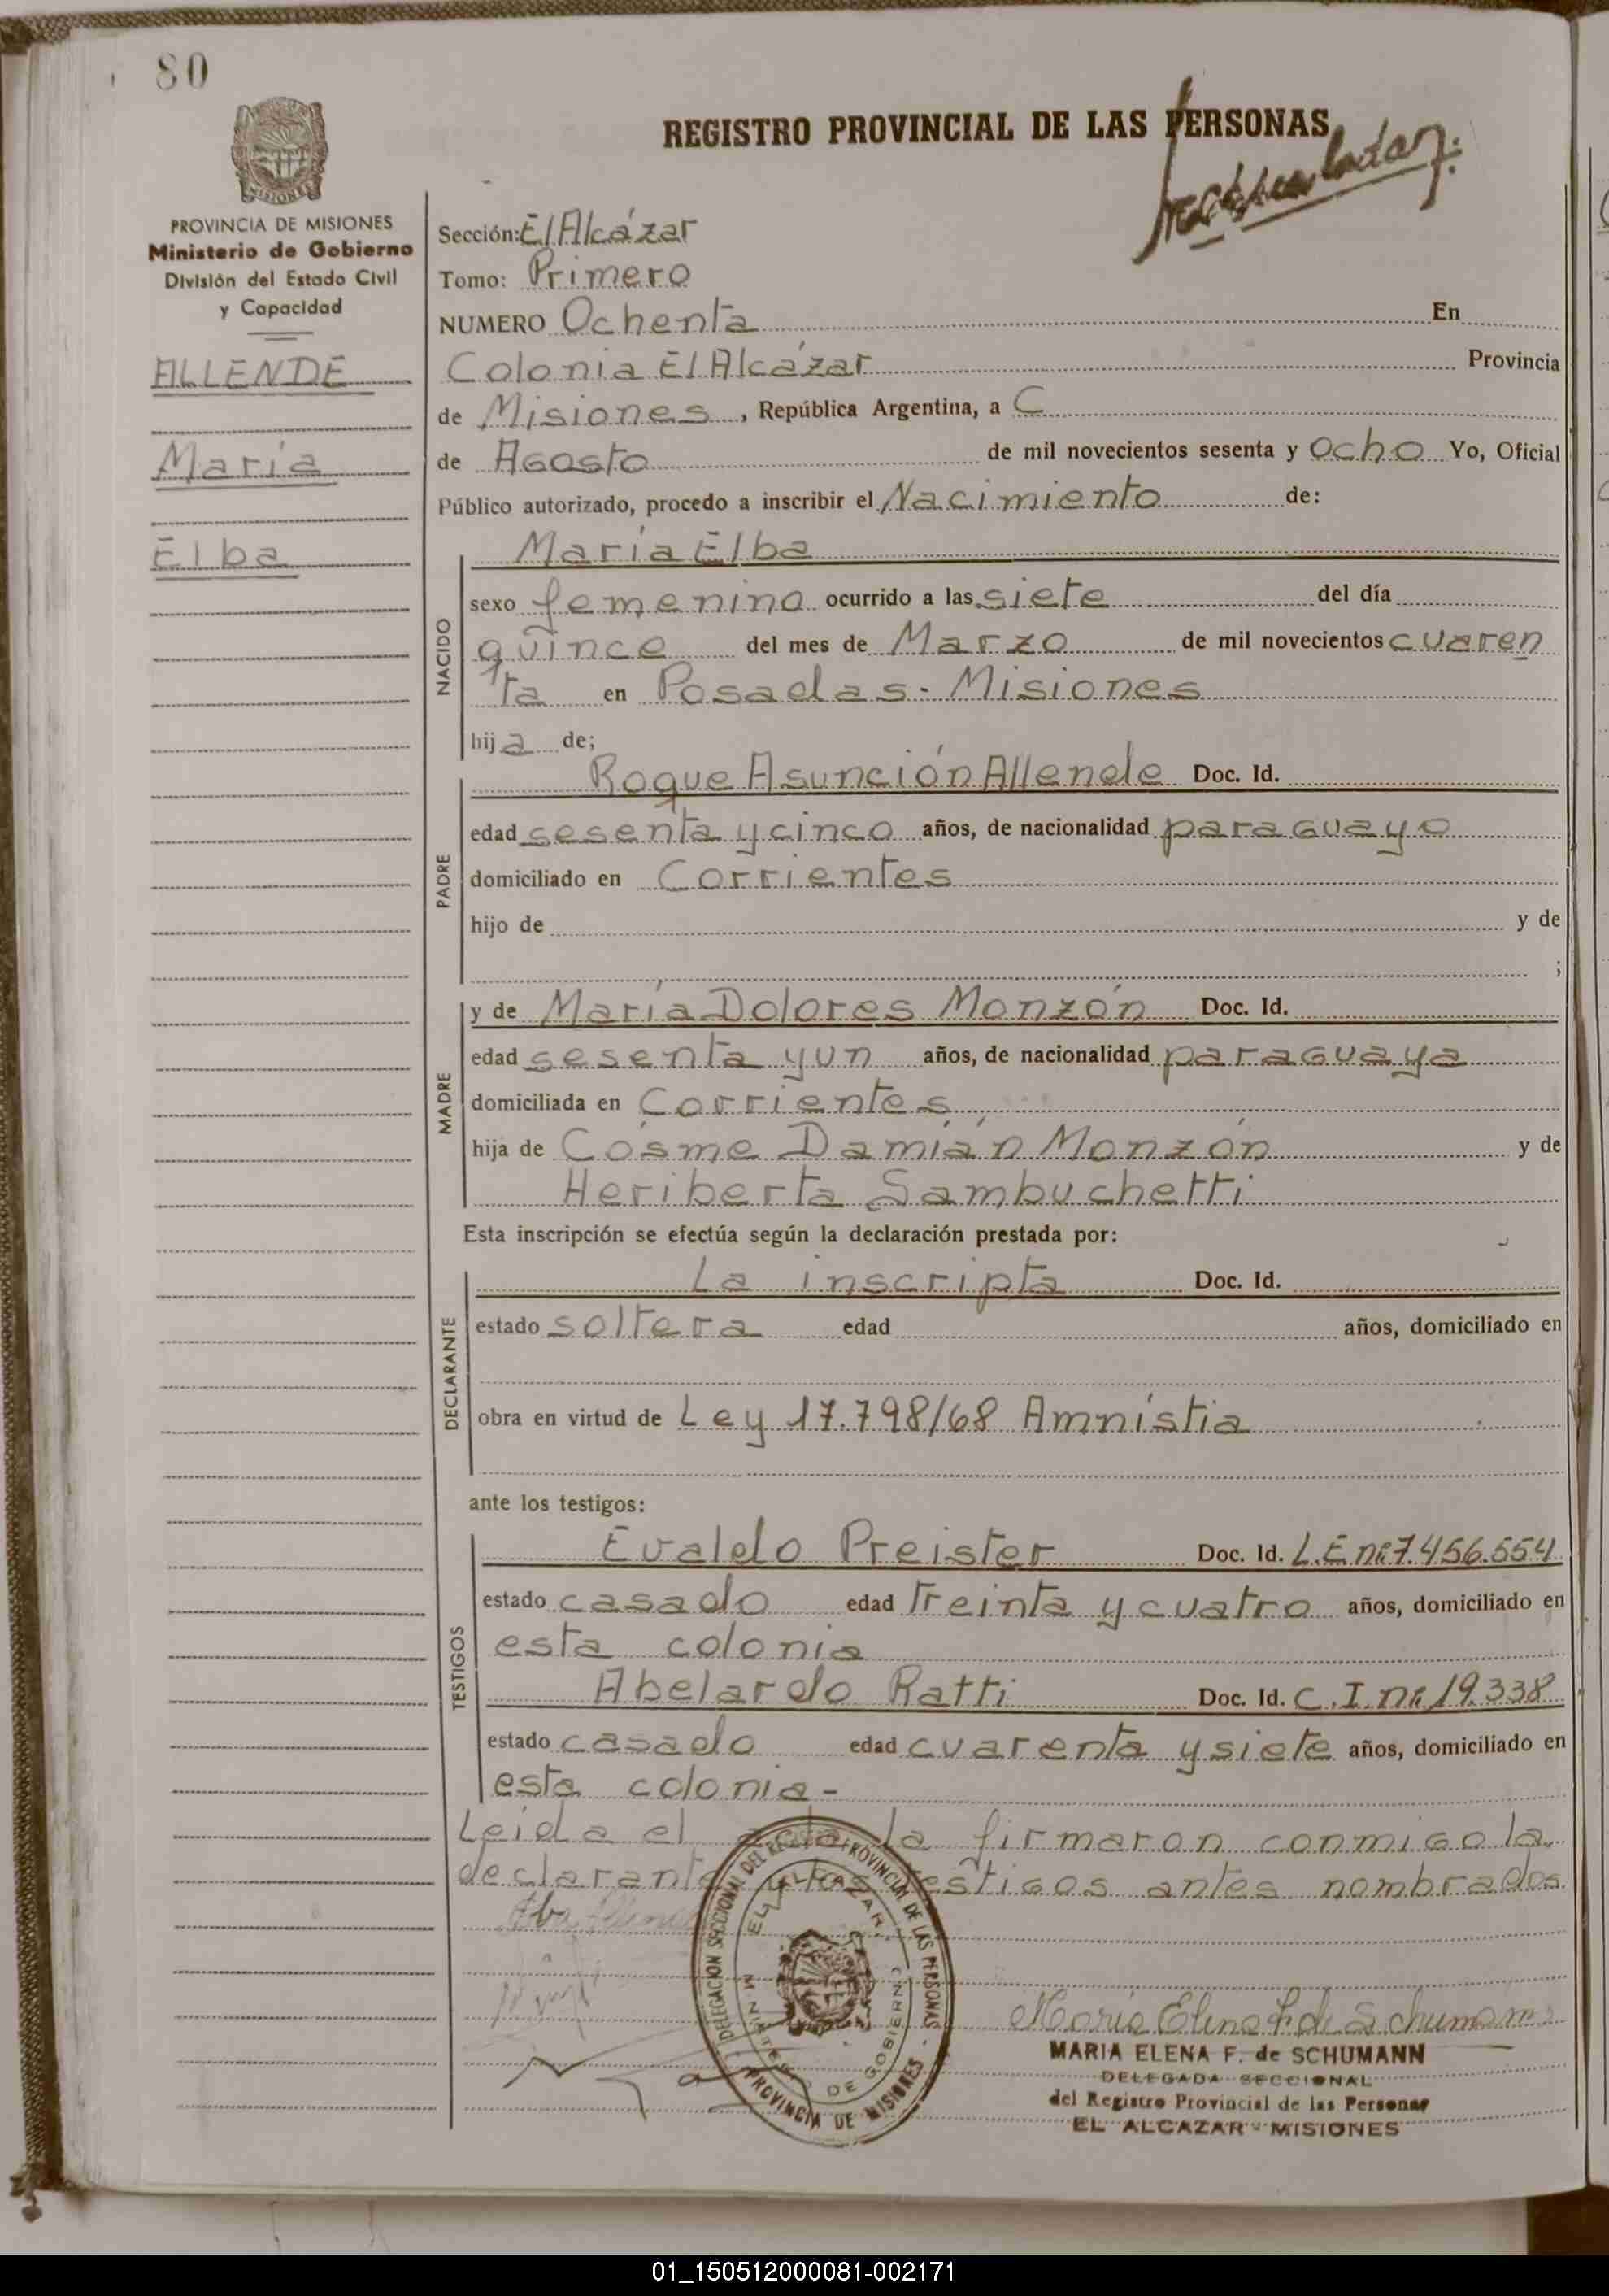 80
REGISTRO PROVINCIAL DE LAS PERSONAS
MISIONES
PROVINCIA DE MISIONES
Ministerio de Gobierno
División del Estado Civil
y Capacidad
ALLENDE
María
Elba
Sección: El Alcázar
Tomo: Primero
NUMERO Ochenta En
Colonia El Alcázar Provincia
de Misiones, República Argentina, a
de Agosto de mil novecientos sesenta y ocho Yo, Oficial
Público autorizado, procedo a inscribir el Nacimiento de:
María Elba
NACIDO
sexo femenino ocurrido a las siete del día
quince del mes de Marzo de mil novecientos cuaren
ta en Posadas - Misiones
hija de;
PADRE
Roque Asunción Allende Doc. Id.
edad sesenta y cinco años, de nacionalidad paraguayo
domiciliado en Corrientes
hijo de y de
;
MADRE
y de María Dolores Monzón Doc. Id.
edad sesenta y un años, de nacionalidad paraguaya
domiciliada en Corrientes
hija de Cósme Damián Monzón y de
Heriberta Sambuchetti
Esta inscripción se efectúa según la declaración prestada por:
DECLARANTE
La inscripta Doc. Id.
estado soltera edad años, domiciliado en
obra en virtud de Ley 17.798/68 Amnístia
ante los testigos:
TESTIGOS
Evaldo Preister Doc. Id. L.E nº 7.456.554
estado casado edad treinta y cuatro años, domiciliado en
esta colonia
Abelardo Ratti Doc. Id. C.I. nº 19.338
estado casado edad cuarenta y siete años, domiciliado en
esta colonia -
Leída el acta la firmaron conmigo la
declarante y los testigos antes nombrados
DELEGACION SECCIONAL DEL REGISTRO PROVINCIAL DE LAS PERSONAS - PROVINCIA DE MISIONES
EL ALCAZAR
MINISTERIO DE GOBIERNO
Maria Elena F. de Schumann
MARIA ELENA F. de SCHUMANN
DELEGADA SECCIONAL
del Registro Provincial de las Personas
EL ALCAZAR - MISIONES
01_150512000081-002171